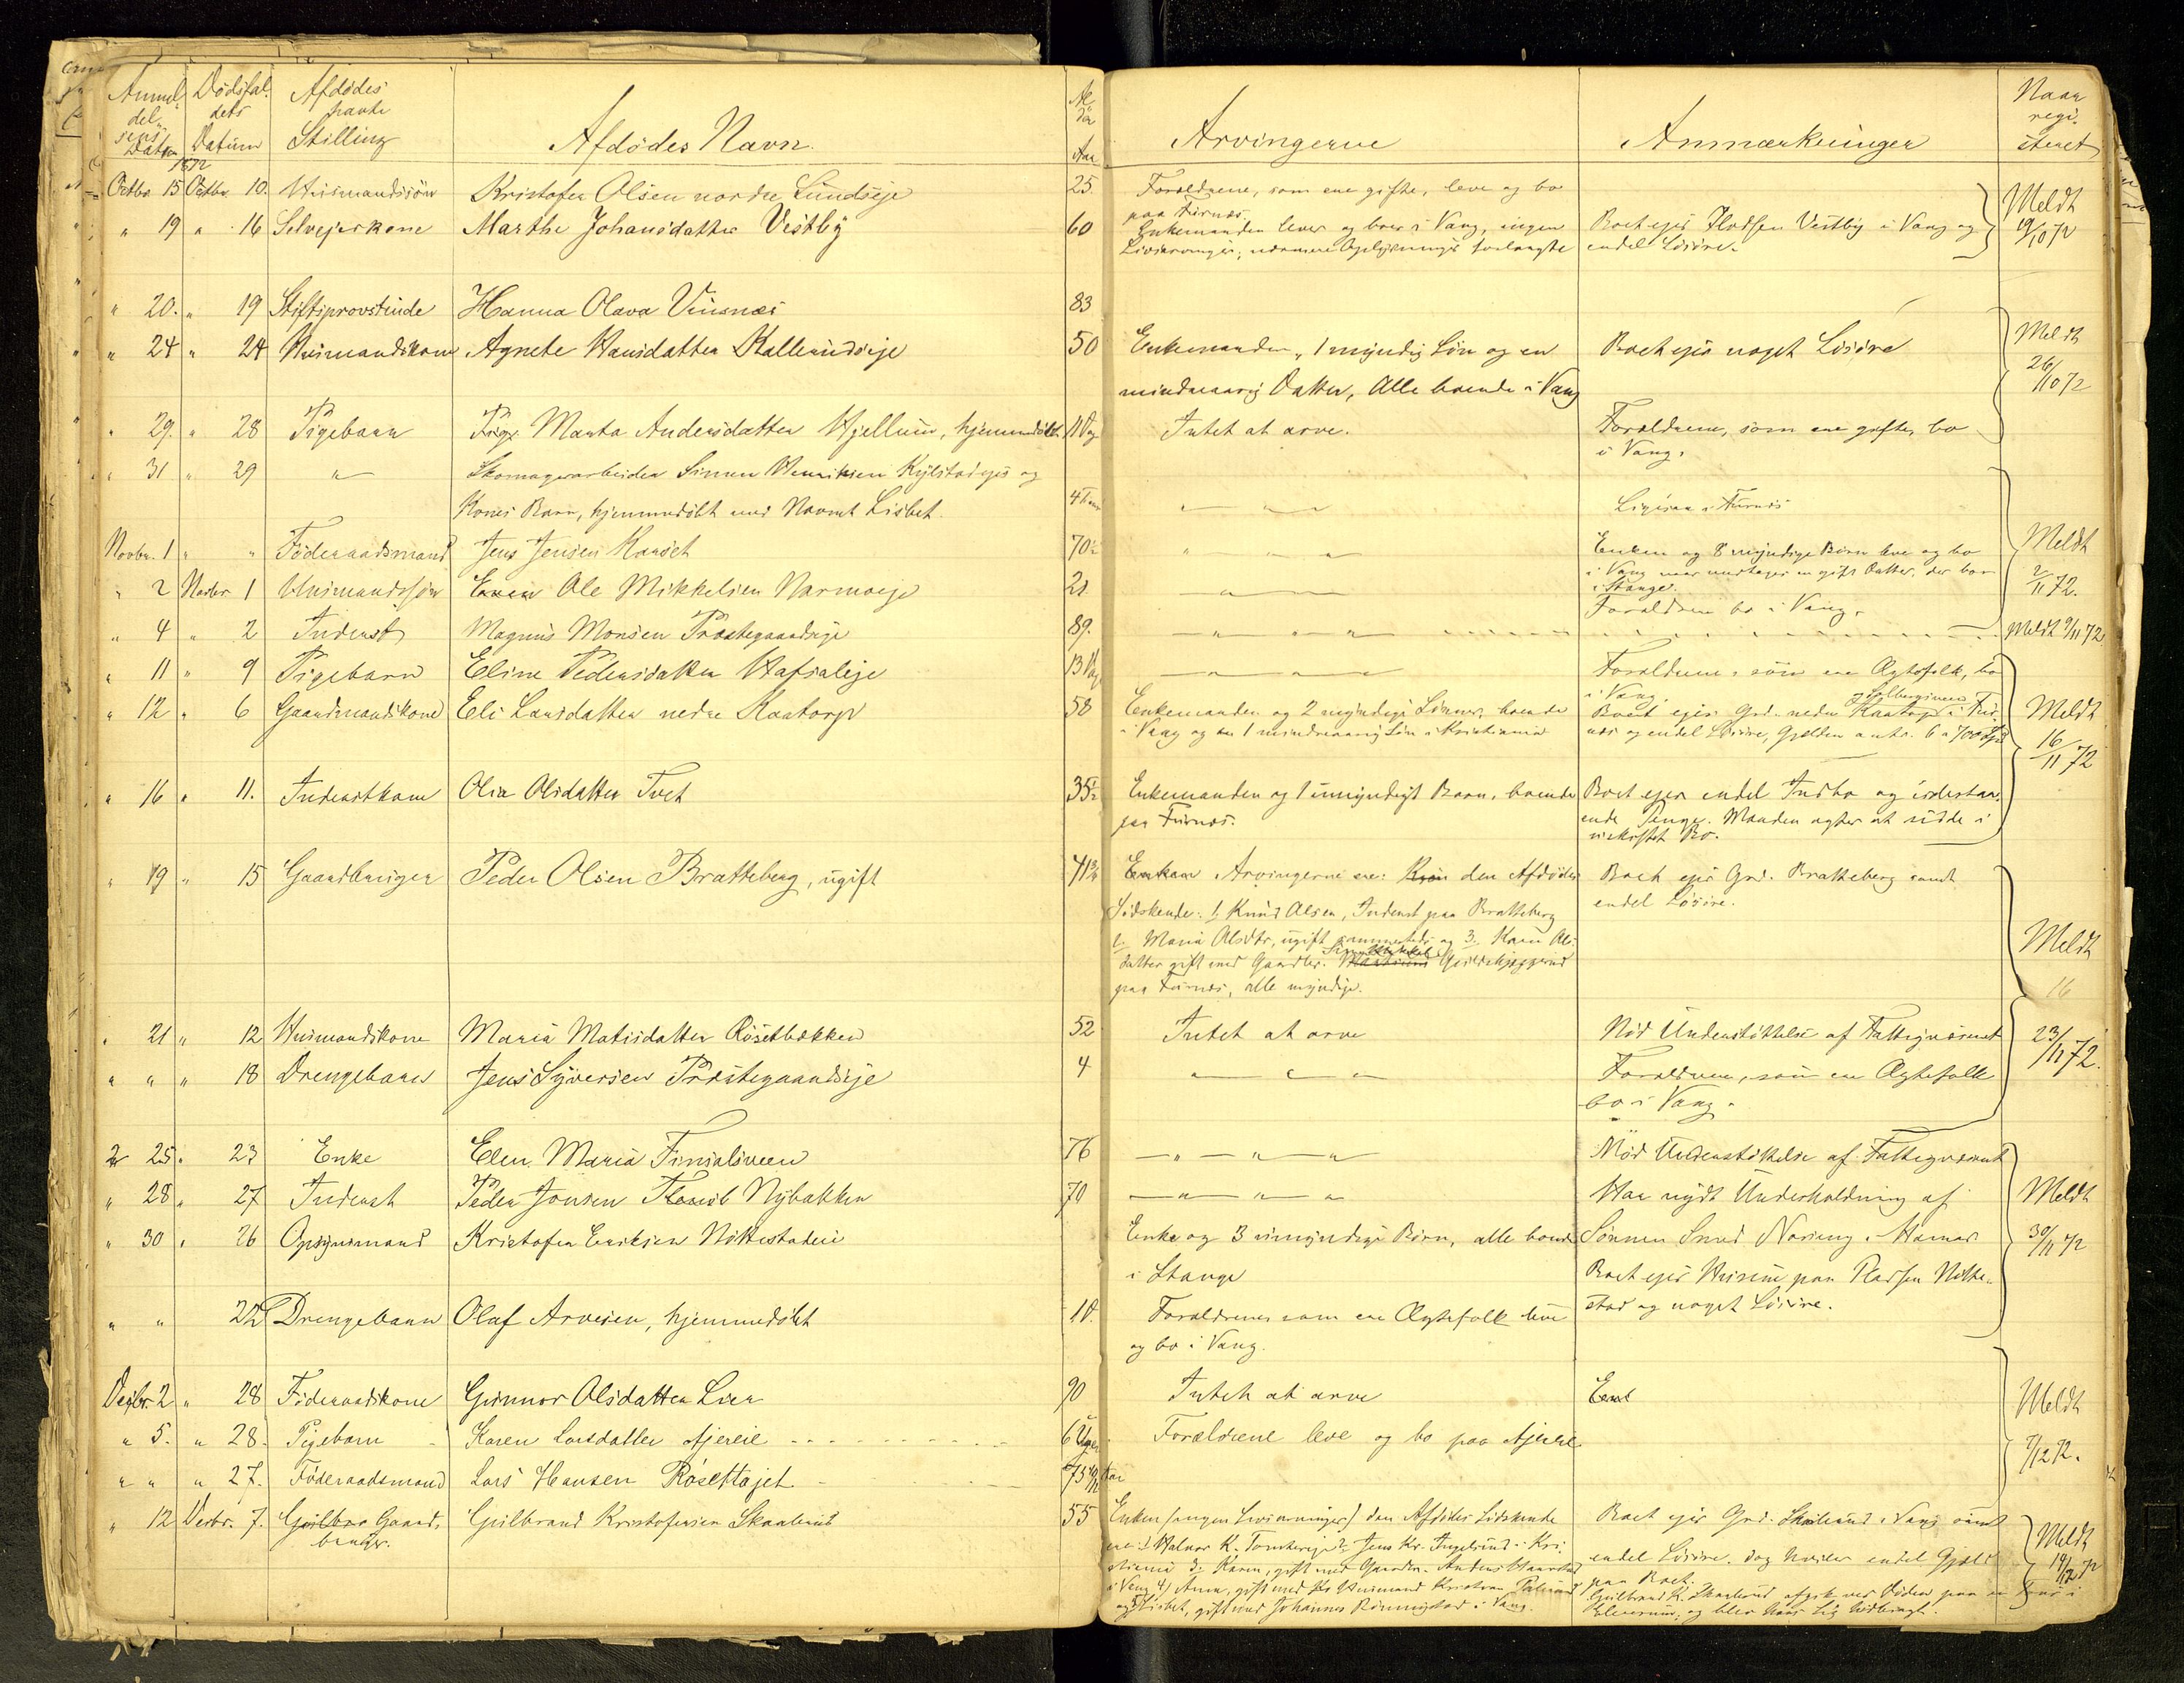 Anmel-
del-
sens
Datum
Dødsfal-
dets
Datum
Afdødes
havte
Stilling
Afdødes Navn.
Al-
der
Aar
Arvingerne
Anmærkninger
Naar
regi-
streret
1872
Octbr. 15 Octbr. 10. Husmandssøn Kristofer Olsen nordre Lundseje 25. Forældrene, som ere gifte, leve og bo
paa Furnæs.
" 19 " 16 Selvejerkone Marthe Johansdatter Vestby 60 Enkemanden lever og boer i Vang, ingen Boet ejer Vestby i Vang og
Livsarvinger; nærmere Oplysninger forlangte endel Løsøre.
Meldt
19/10 72
" 20. " 19 Stiftsprovstinde Hanna Olava Vinsnæs 83
" 24 " 24 Husmandskone Agnete Hansdatter Kallerudseje 50 Enkemanden, 1 myndig Søn og en Boet ejer noget Løsøre
mindreaarig Datter, Alle boende i Vang
Meldt
26/10 72
" 29. " 28 Pigebarn Marta Andersdatter Hjellum, hjemmedøbt 11 Dage Intet at arve. Forældrene, som ere gifte, bo
i Vang.
" 31 " 29 " Skomagerarbeider Simen Henriksen Kylstadejes og
Kones Barn, hjemmedøbt med Navnet Lisbet. 4 Timer " " " Ligesaa i Furnæs
Novbr. 1 " " Føderaadsmand Jens Jensen Karset 70 1/2 " " " Enken og 8 myndige Børn leve og bo
i Vang naar undtages en gift Datter, der bor
i Stange.
" 2 Novbr. 1 Husmandssøn Ole Mikkelsen Narmoeje 21 " Forældrene bo i Vang.
Meldt
2/11 72.
" 4 " 2 Inderst Magnus Monsen Præstegaardseje 89. " " " Meldt 9/11 72.
" 11 " 9 Pigebarn Eline Pedersdatter Hafsaleje 13 Dage " " " Forældrene, som ere Ægtefolk, bo
i Vang.
" 12 " 6 Gaardmandskone Eli Larsdatter nedre Kaatorp 58 Enkemanden og 2 myndige Sønner, boende Boet ejer Grd. nedre Kaatorp i Fur-
i Vang og 1 mindreaarig Søn i Kristiania næs og endel Løsøre, Gjælden antr. 6 a 700
Meldt
16/11 72
" 16 " 11. Inderstkone Olia Olsdatter Tvet 35 1/2 Enkemanden og 1 umyndigt Barn, boende Boet ejer endel Indbo og udestaa-
paa Furnæs. ende Penge. Manden agter at sidde i
uskiftet Bo.
" 19 " 15 Gaardbruger Peder Olsen Bratteberg, ugift 41 3/4 Arvingerne ere: den Afdødes Boet ejer Grd. Bratteberg samt
Sødskende: 1. Knud Olsen, Inderst paa Bratteberg endel Løsøre.
2. Maria Olsdtr, ugift sammesteds og 3. Kari Ols-
datter gift med Gaardbr.
paa Furnæs, alle myndige.
Meldt
16
" 21 " 12 Husmandskone Maria Matisdatter Røsetbakken 52 Intet at arve Nød Understøttelse af Fattigvæsenet
" " " 18 Drengebarn Jens Syversen Præstegaardseje 4 " " " Forældrene, som ere Ægtefolk
bo i Vang.
23/11 72.
" 25 " 23 Enke Elen Maria Finsalsveen 76 " " " Nød Understøttelse af Fattigvæsenet
" 28 " 27 Inderst Peder Jonsen Nybakken 70 " " " Har nydt Underholdning af
" 30 " 26 Opsynsmand Kristofer Eriksen Nøttestadeie Enke og 3 umyndige Børn, alle boende Sønnen Smed Noreng i Hamar
i Stange Boet ejer Husene paa Pladsen Nøtte-
stad og noget Løsøre.
Meldt
30/11 72
" " 22 Drengebarn Olaf Arvesen, hjemmedøbt 1 D. Forældrene som ere Ægtefolk leve
og bo i Vang.
Decbr. 2 " 28 Føderaadskone Gunnor Olsdatter Lier 90 Intet at arve
" 5. " 28. Pigebarn Karen Larsdatter Ajereie 6 Uger Forældrene leve og bo paa Ajereie
" " " 27. Føderaadsmand Lars Hansen Røsettajet 75 Aar
Meldt
7/12 72.
" 12 Decbr. 7. Gaard-
bruger. Gulbrand Kristofersen Skaaberud 55 Enken (ingen Livsarvinger) den Afdødes Sødskende Boet ejer Grd. i Vang samt
ere: 1 Halvor K. Tomtereje 2. Jens Kr. Ingelsrud i Kri- endel Løsøre. dog hviler endel Gjæld
stiania 3. Karen, gift med Gaardbr. Anders paa Boet.
i Vang 4) Anne, gift med Husmand Kristian Gulbrand K. afgik ved Døden paa en Tour i
og 5 Lisbet, gift med Johannes Rønningstad i Vang. Elverum, og blev hans Lig hidbragt.
Meldt
14/12 72